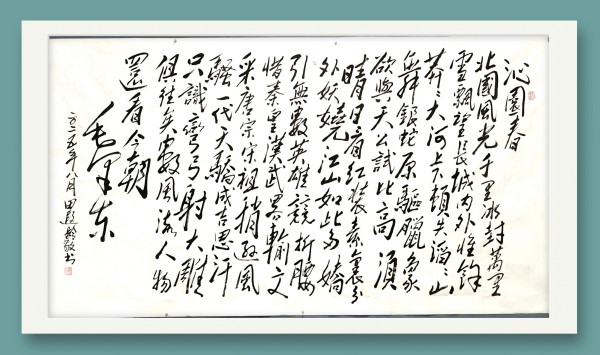 沁園春
北國風光千里冰封萬里
雪飄望長城内外惟餘
莽々大河上下頓失滔々山
舞銀蛇原驅臘象
欲與天公試比高須
晴日看红裝素裹分
外妖嬈江山如此多嬌
引無數英雄競折腰
惜秦皇漢武畧輸文
采唐宗宋祖稍遜風
騷一代天驕成吉思汗
只識彎弓射大雕
俱往矣數風流人物
還看今朝
毛澤东
年八月田敬书